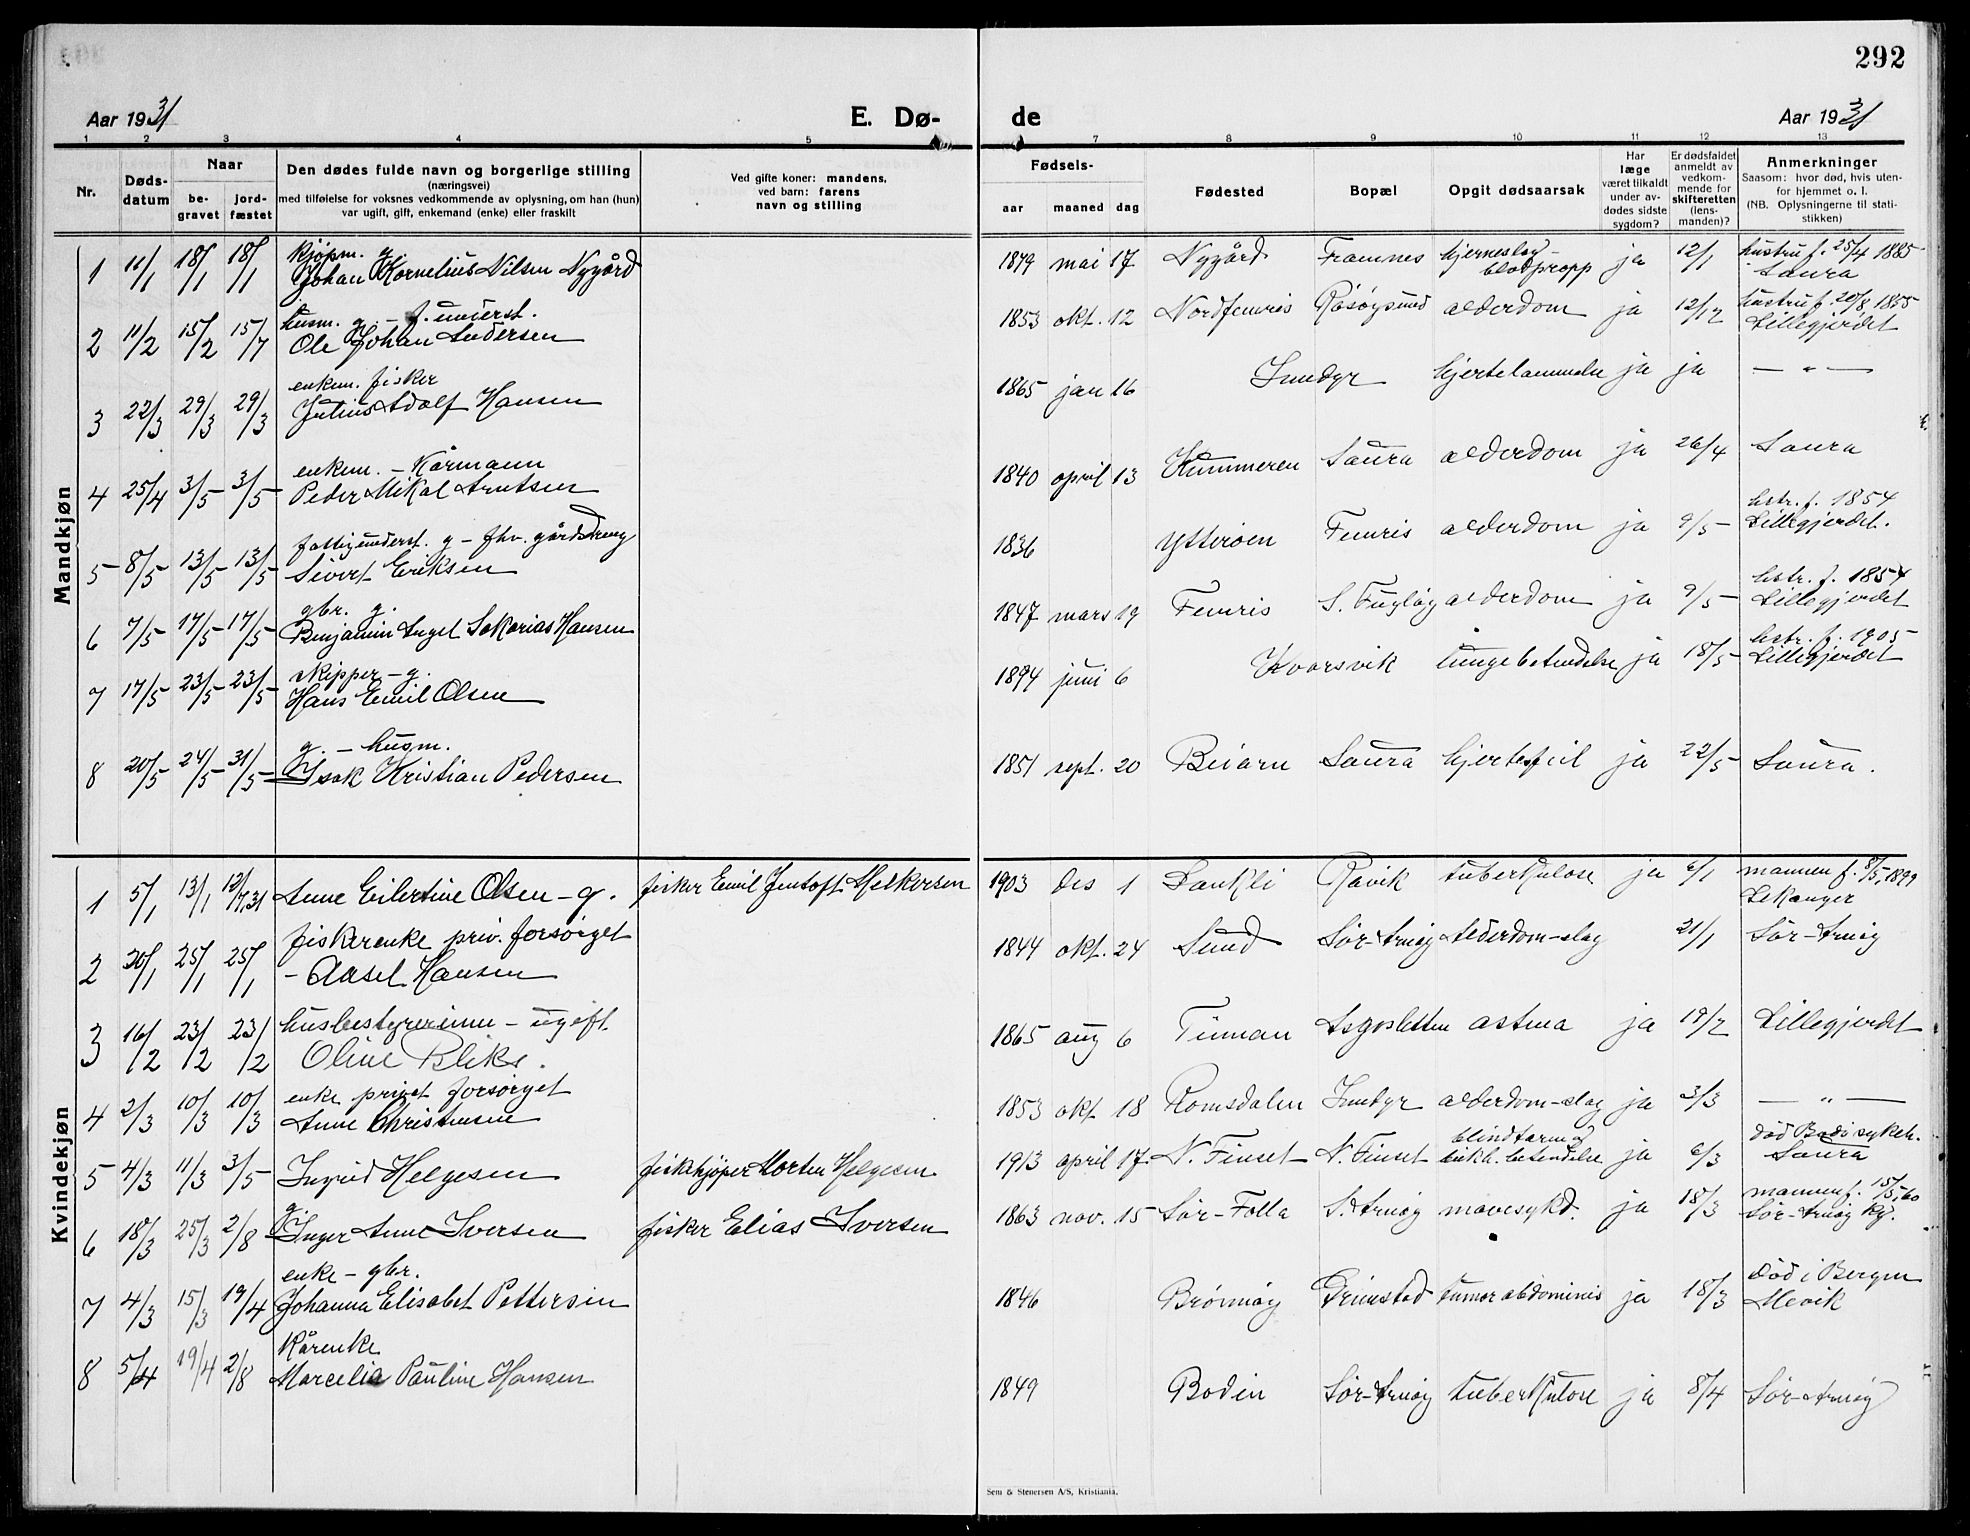 292
Aar 1931 E. Dø- de Aar 1931
1 2 3 4 5 7 8 9 10 11 12 13
Nr.
Døds-
datum
Naar
be-
gravet
jord-
fæstet
Den dødes fulde navn og borgerlige stilling
(næringsvei)
med tilføielse for voksnes vedkommende av oplysning, om han (hun)
var ugift, gift, enkemand (enke) eller fraskilt
Ved gifte koner: mandens,
ved barn: farens
navn og stilling
Fødsels-
aar maaned dag
Fødested
Bopæl
Opgit dødsaarsak
Har
læge
været tilkaldt
under av-
dødes sidste
sygdom?
Er dødsfaldet
anmeldt av
vedkom-
mende for
skifteretten
(lens-
manden)?
Anmerkninger
Saasom: hvor død, hvis uten-
for hjemmet o. l.
(NB. Oplysningerne til stati-
stikken)
Mandkjøn
kjøpm. g.
1 11/1 18/1 18/1 Johan Kornelius Nilsen Nygård 1879 mai 17 Nygård Framnes hjerneslag - blodpropp ja 12/1 hustru f. 25/4 1885
Saura
husm. g. - f. underst.
2 11/2 15/2 15/7 Ole Johan Andersen 1853 okt. 12 Nordfemris Råsøysund alderdom ja 12/12 hustru f. 20/8 1855
Lillegjerdet
enkem. fisker
3 22/3 29/3 29/3 Julius Adolf Hansen 1865 jan 16 Inndyr hjertelammelse ja ja — " —
enkem. - Kårmann
4 25/4 3/5 3/5 Peder Mikal Arntsen 1840 april 13 Kummeren Saura alderdom ja 26/4 Saura
fattigunderst. g - fhv. gårdstreng
5 8/5 13/5 13/5 Sivert Eriksen 1836 Ytterøen Femris alderdom ja 9/5 hstr. f. 1854
Lillegjerdet.
gbr. g.
6 7/5 17/5 17/5 Benjamin Angel Sakarias Hansen 1847 mars 19 Femris S. Fugløy alderdom ja 9/5 hstr. f. 1857
Lillegjerdet
skipper - g.
7 17/5 23/5 23/5 Hans Emil Olsen 1894 juni 6 Kvarsvik lungebetendelse ja 18/5 hstr. f. 1905
Lillegjerdet
g. - husm.
8 20/5 24/5 31/5 Isak Kristian Pedersen 1851 sept. 20 Beiarn Saura hjertefeil ja 22/5 Saura.
Kvindekjøn
1 5/1 13/1 Anne Eilertine Olsen - g. fisker Emil Jentoft Melkersen 1903 des 1 Sankli Råvik tuberkulose ja 6/1 mannen f. 8/5, 1899
Lekanger
fiskerenke priv. forsørget
2 20/1 25/1 25/1 - Aasel Hansen 1844 okt. 24 Sund Sør-Arnøy Alderdom-slag 21/1 Sør-Arnøy
husbestyrerinne - ugift.
3 16/2 23/2 23/2 Oline Bliks. 1865 aug 6 astma ja 19/2 Lillegjerdet
enke privat forsørget
4 2/3 10/3 10/3 Anne Christensen 1853 okt. 18 Romsdalen Inndyr alderdom-slag ja 3/3 — " —
5 4/3 11/3 3/5 Ingrid Helgesen fiskekjøper Morten Helgesen 1913 april 17 N. Finset N. Finset blindtarm og bukh. betendelse ja 6/3 død Bodi sykeh.
Saura
g.
6 18/3 25/3 2/8 Inger Anne Iversen fisker Elias Iversen 1863 nov. 15 Sør-Folla S. Arnøy mavesykd. ja 18/3 mannen f. 15/5, 60
Sør-Arnøy kg.
enke - gbr.
7 4/3 15/3 19/4 Johanna Elisabet Pettersen 1846 Brønnøy Grimstad tumor abdominis ja 18/3 død i Bergen
Mevik
Kårenke
8 5/4 19/4 2/8 Marcelia Pauline Hansen 1849 Bodin Sør-Arnøy tuberkulose ja 8/4 Sør-Arnøy
Sem & Stenersen A/S, Kristiania.